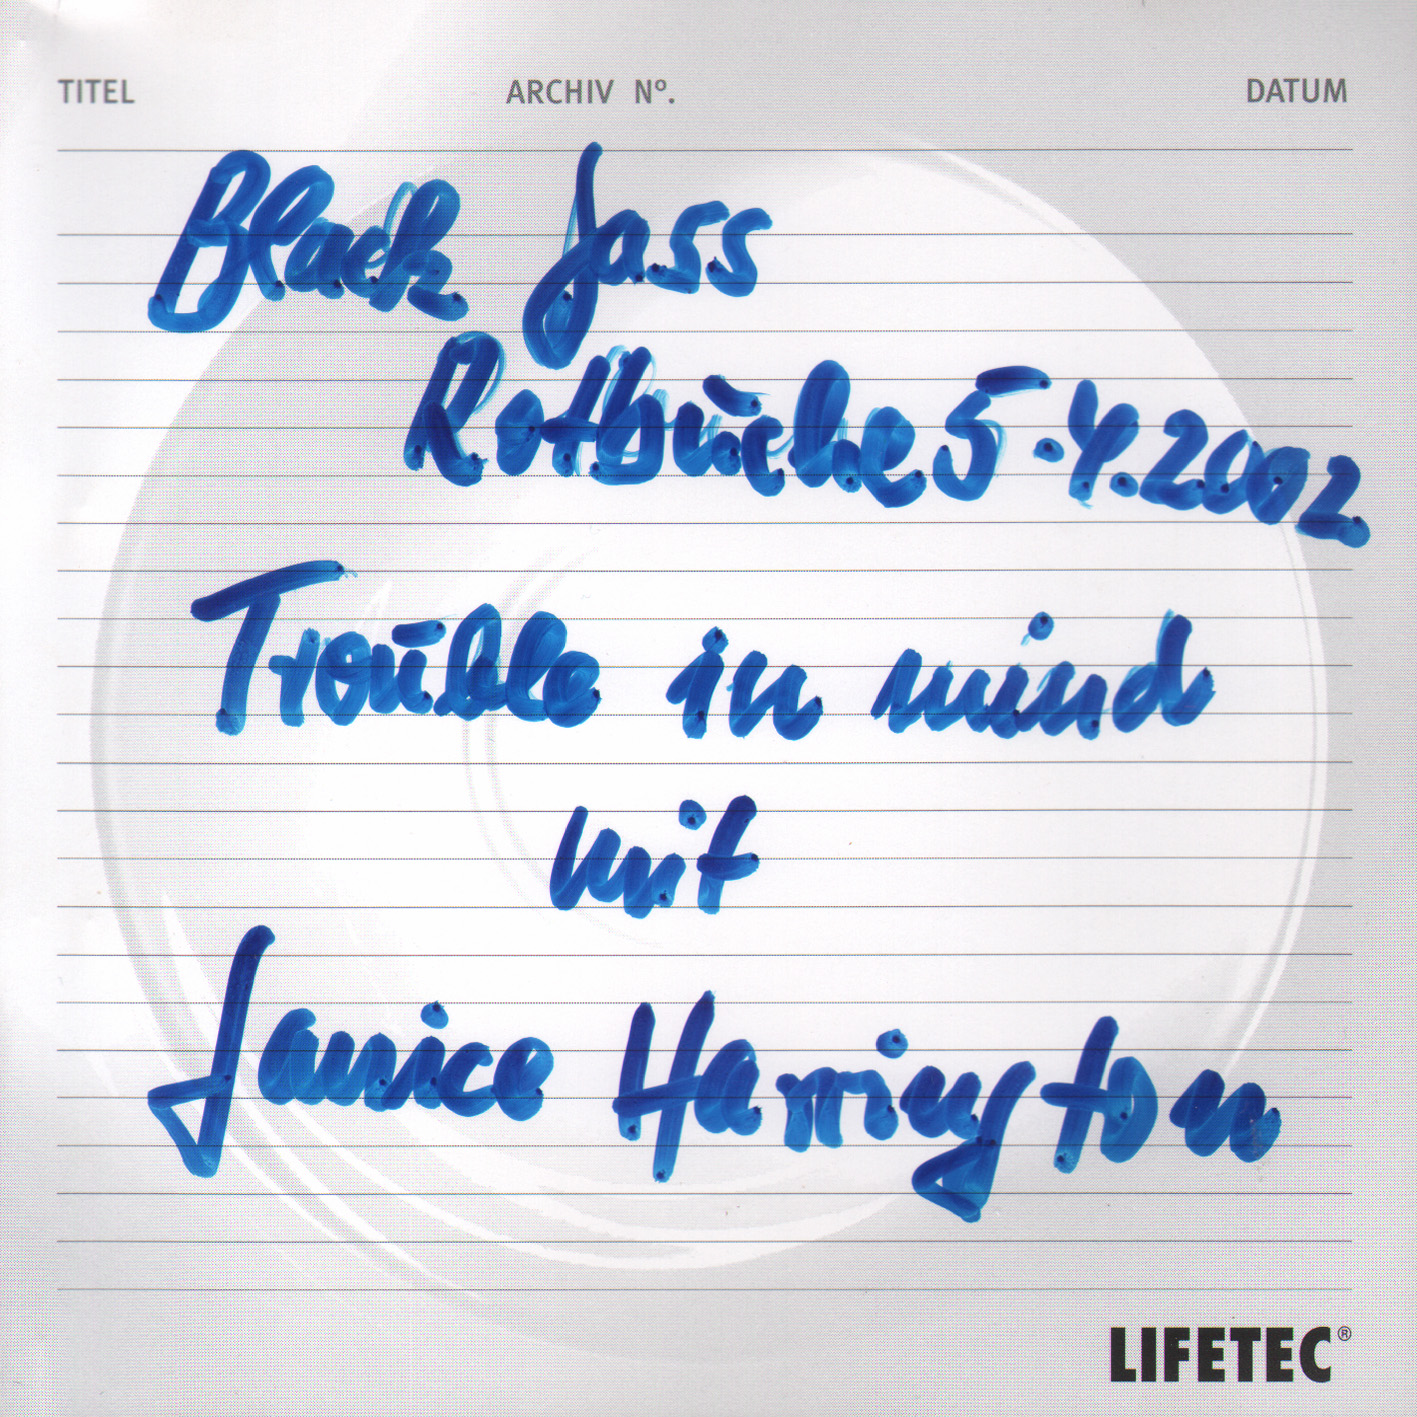 TITEL ARCHIV Nº. DATUM
Black Jass
Rotbuche 5.4.2002
Trouble in mind
mit
Janice Harrington
LIFETEC®